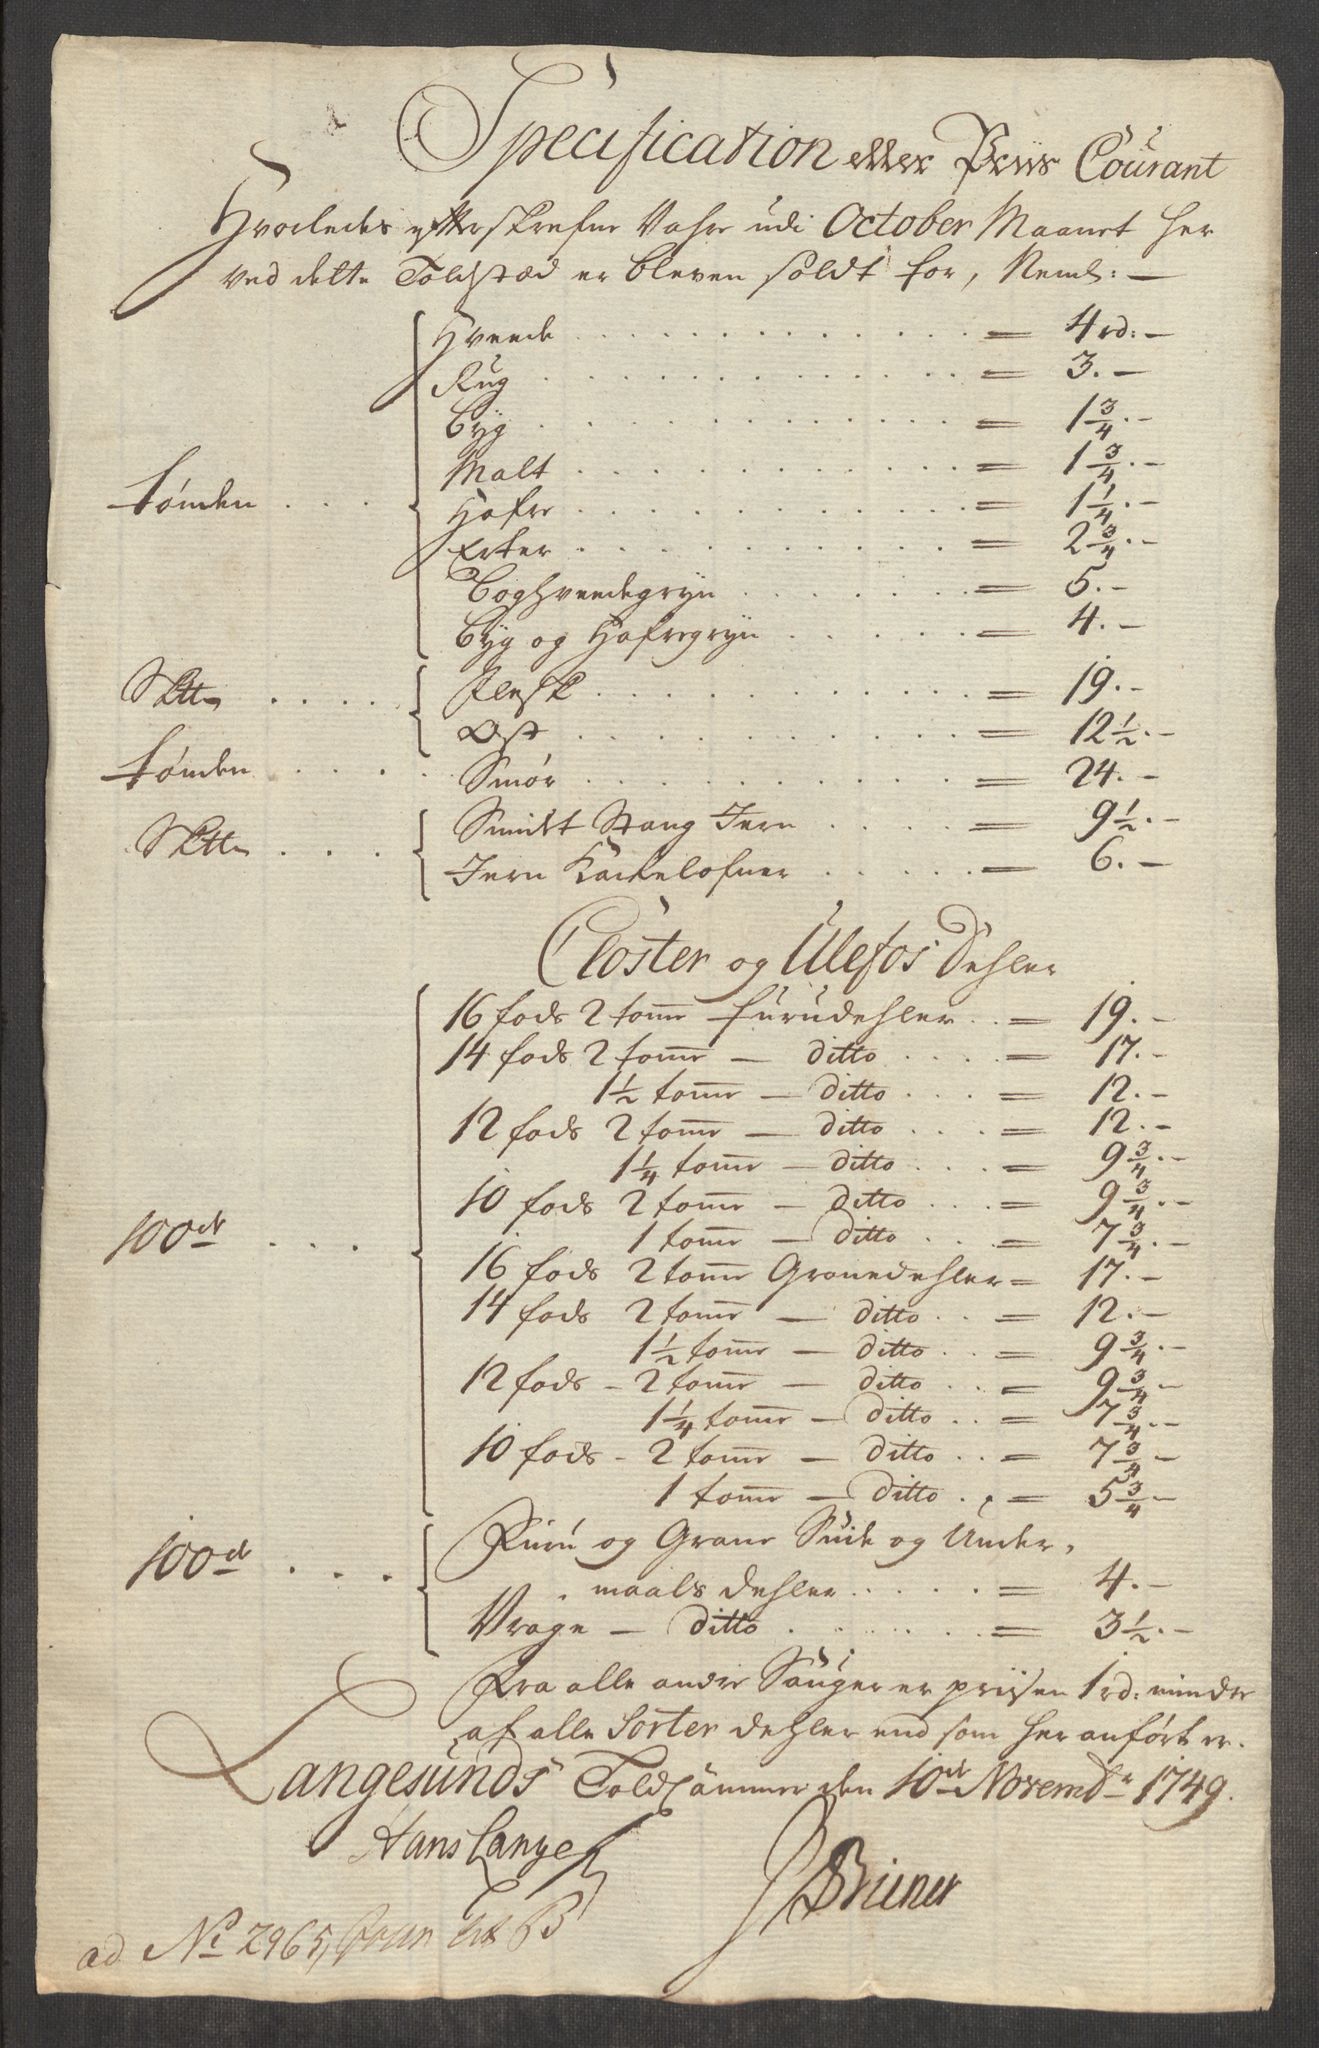 Specification eller Priis Courant
Hvorledes efterskrefne Vahre udi October Maanet her
ved dette Toldstæd er bleven soldt for, Neml: —
Hveede = 4 rd: —
Rug = 3. —
Byg = 1 3/4. —
Malt = 1 3/4. —
tønden Hafre = 1 1/4. —
Erter = 2 3/4. —
Boghveedegryn = 5. —
Byg og Hafregryn = 4. —
Flesk = 19. —
Ost = 12 1/2. —
tønden Smør = 24. —
Smidt Stang Jern = 9 1/2. —
Jern Kackelofner = 6. —
Closter og Ulefos Dehler
16 fods 2 tome furudehler = 19. —
14 fods 2 tome — ditto = 17. —
1 1/2 tome — ditto = 12. —
12 fods 2 tome — ditto = 12. —
1 1/4 tome — ditto = 9 3/4. —
10 fods 2 tome — ditto = 9 3/4. —
100de 1 tome — ditto = 7 3/4. —
16 fods 2 tome Granedehler = 17. —
14 fods 2 tome — ditto = 12. —
1 1/2 tome — ditto = 9 3/4. —
12 fods - 2 tome — ditto = 9 3/4 —
1 1/4 tome — ditto = 7 3/4. —
10 fods - 2 tome — ditto = 7 3/4 —
1 tome — ditto = 5 3/4 —
Furu og Grane Smde og Under,
100de maals dehler = 4. —
Vrage — ditto = 3 1/2. —
Fra alle andre Sauger er priisen 1 rd: mindre
af alle Sorter dehler end som her anført er.
Langesunds Toldcammer den 10de Novembr 1749.
Hans Lange
Bruner
ad No 2965, Lit B